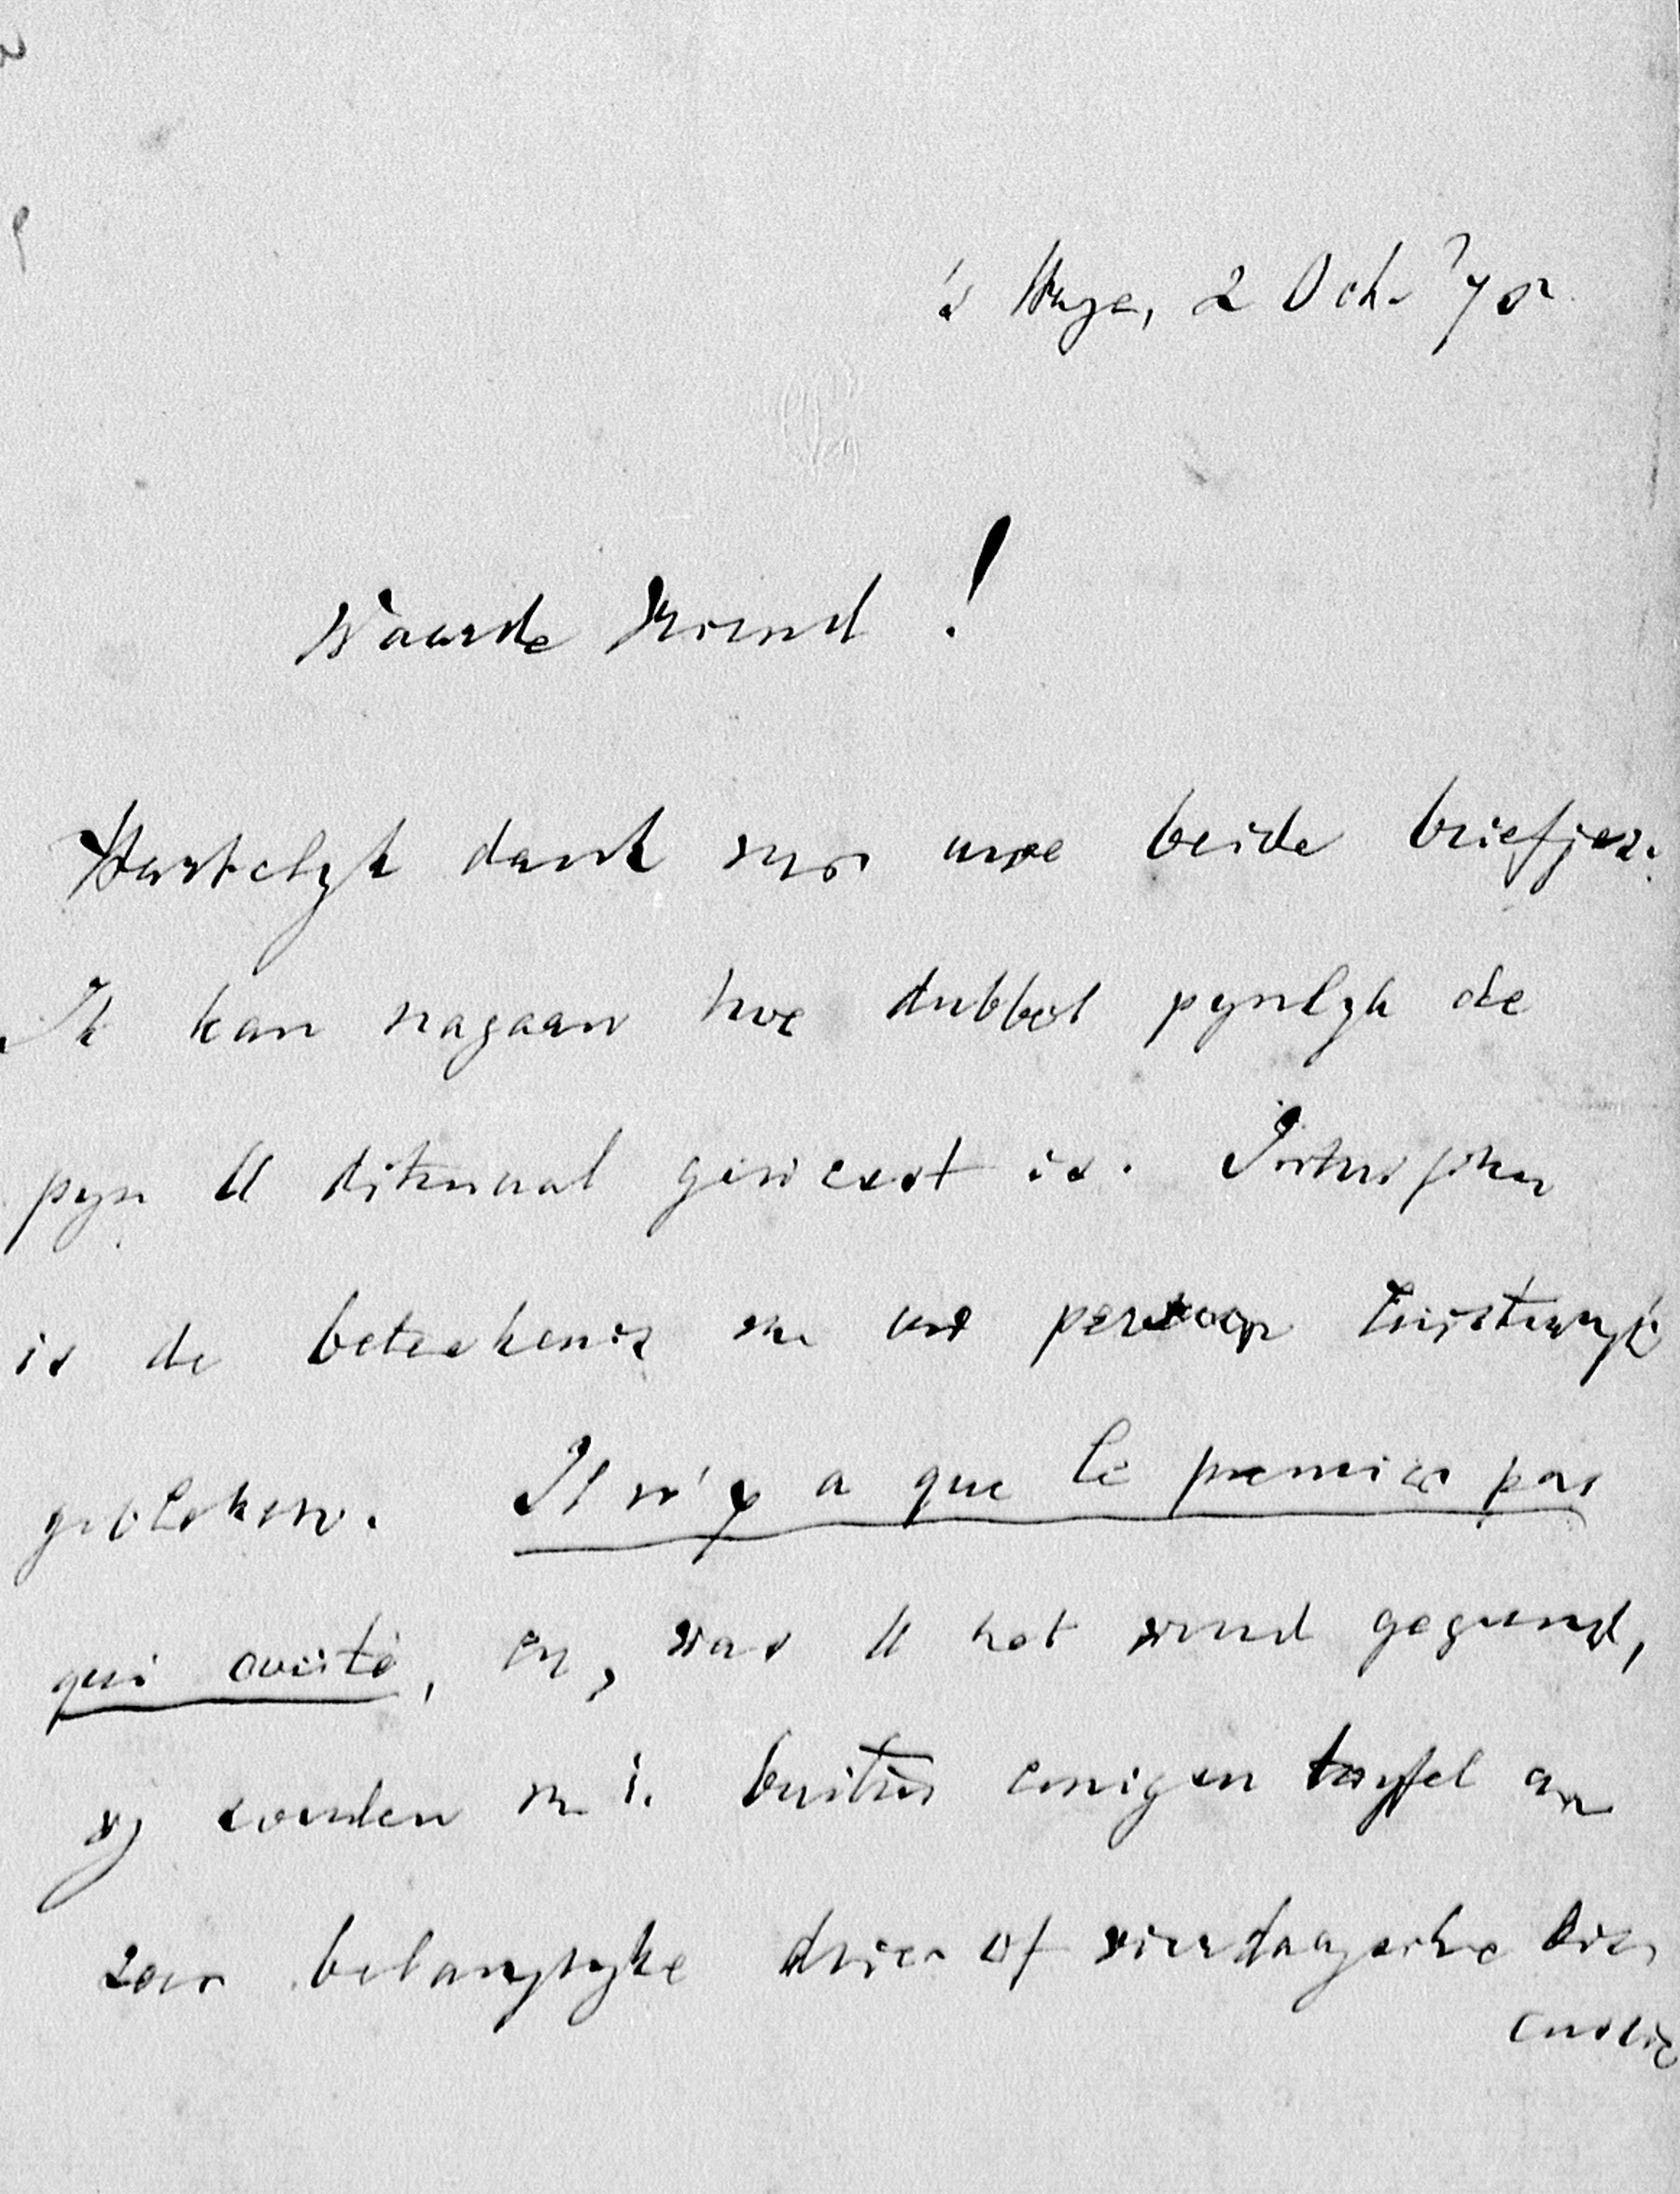 's Hage, 2 Oct. '75
Waarde Vriend!
Hartelyk dank voor uwe beide briefjes.
Ik kan nagaan hoe dubbel pynlyk de
pyn U ditmaal geweest is. Intusschen
is de beteekenis van uw persoon
gebleken. Il n'y a que le premier pas
qui coûte, en, was U het woord gegund,
wy zouden m. i. buiten eenigen twyfel een
zeer belangryke drie- of vierdaagsche dis-
cussie